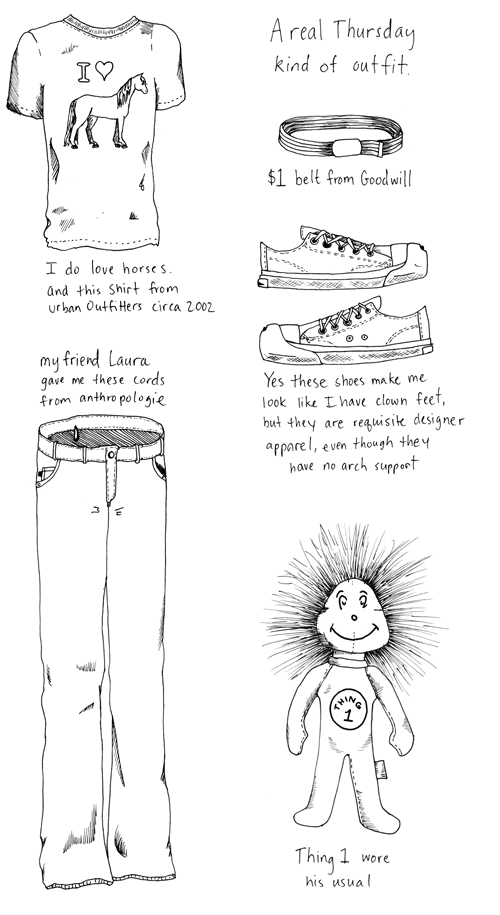 A real Thursday
kind of outfit.
I ♡
$1 belt from Goodwill
I do love horses.
and this shirt from
urban Outfitters circa 2002
my friend Laura
gave me these cords
from anthropologie
Yes these shoes make me
look like I have clown feet,
but they are requisite designer
apparel, even though they
have no arch support
THING
1
Thing 1 wore
his usual